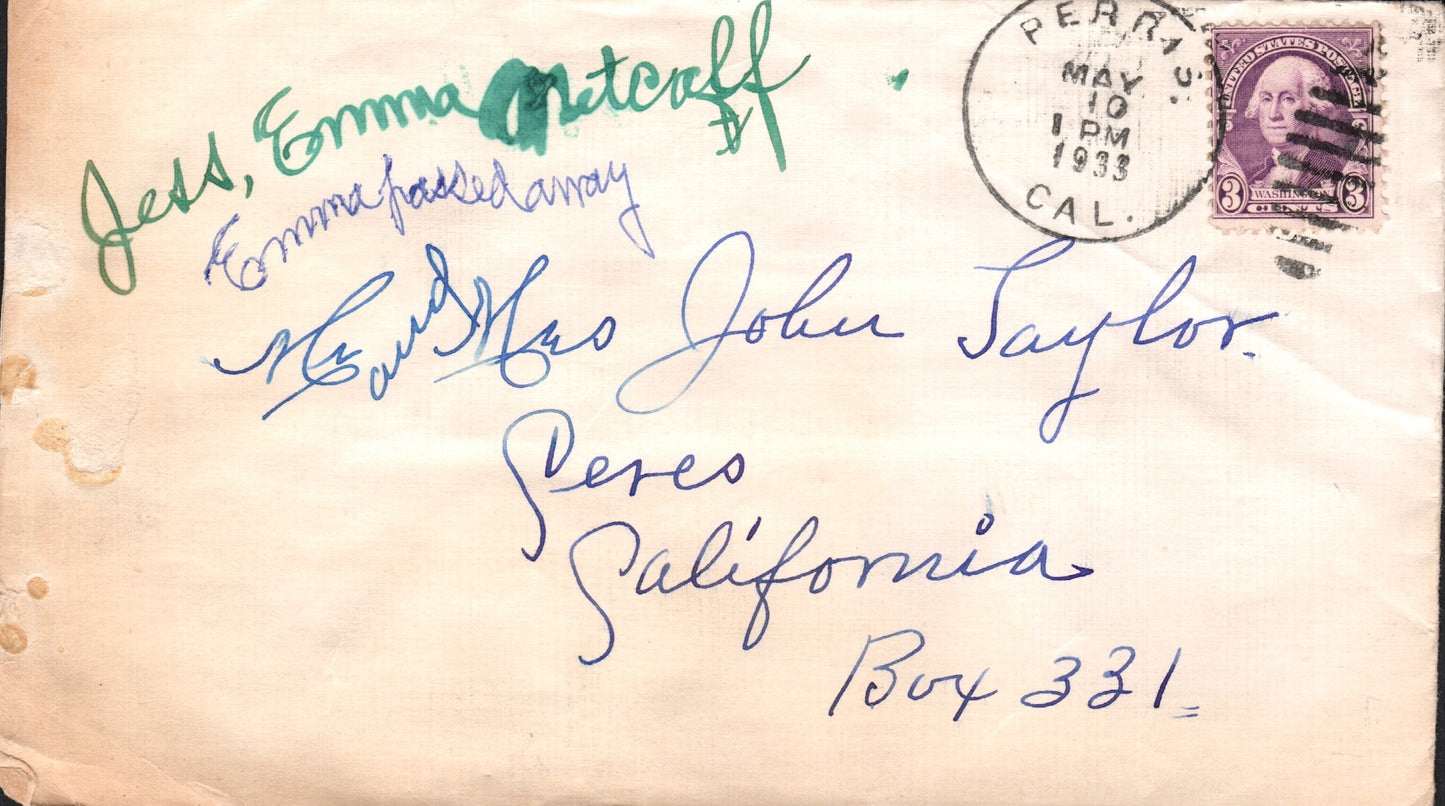 Jess, Emma Metcalff
Emma passed away
PERRIS.
MAY
10
1 PM
1933
CAL.
UNITED STATES POSTAGE
3 WASHINGTON 3
Mr and Mrs John Taylor.
Peres
California
Box 331